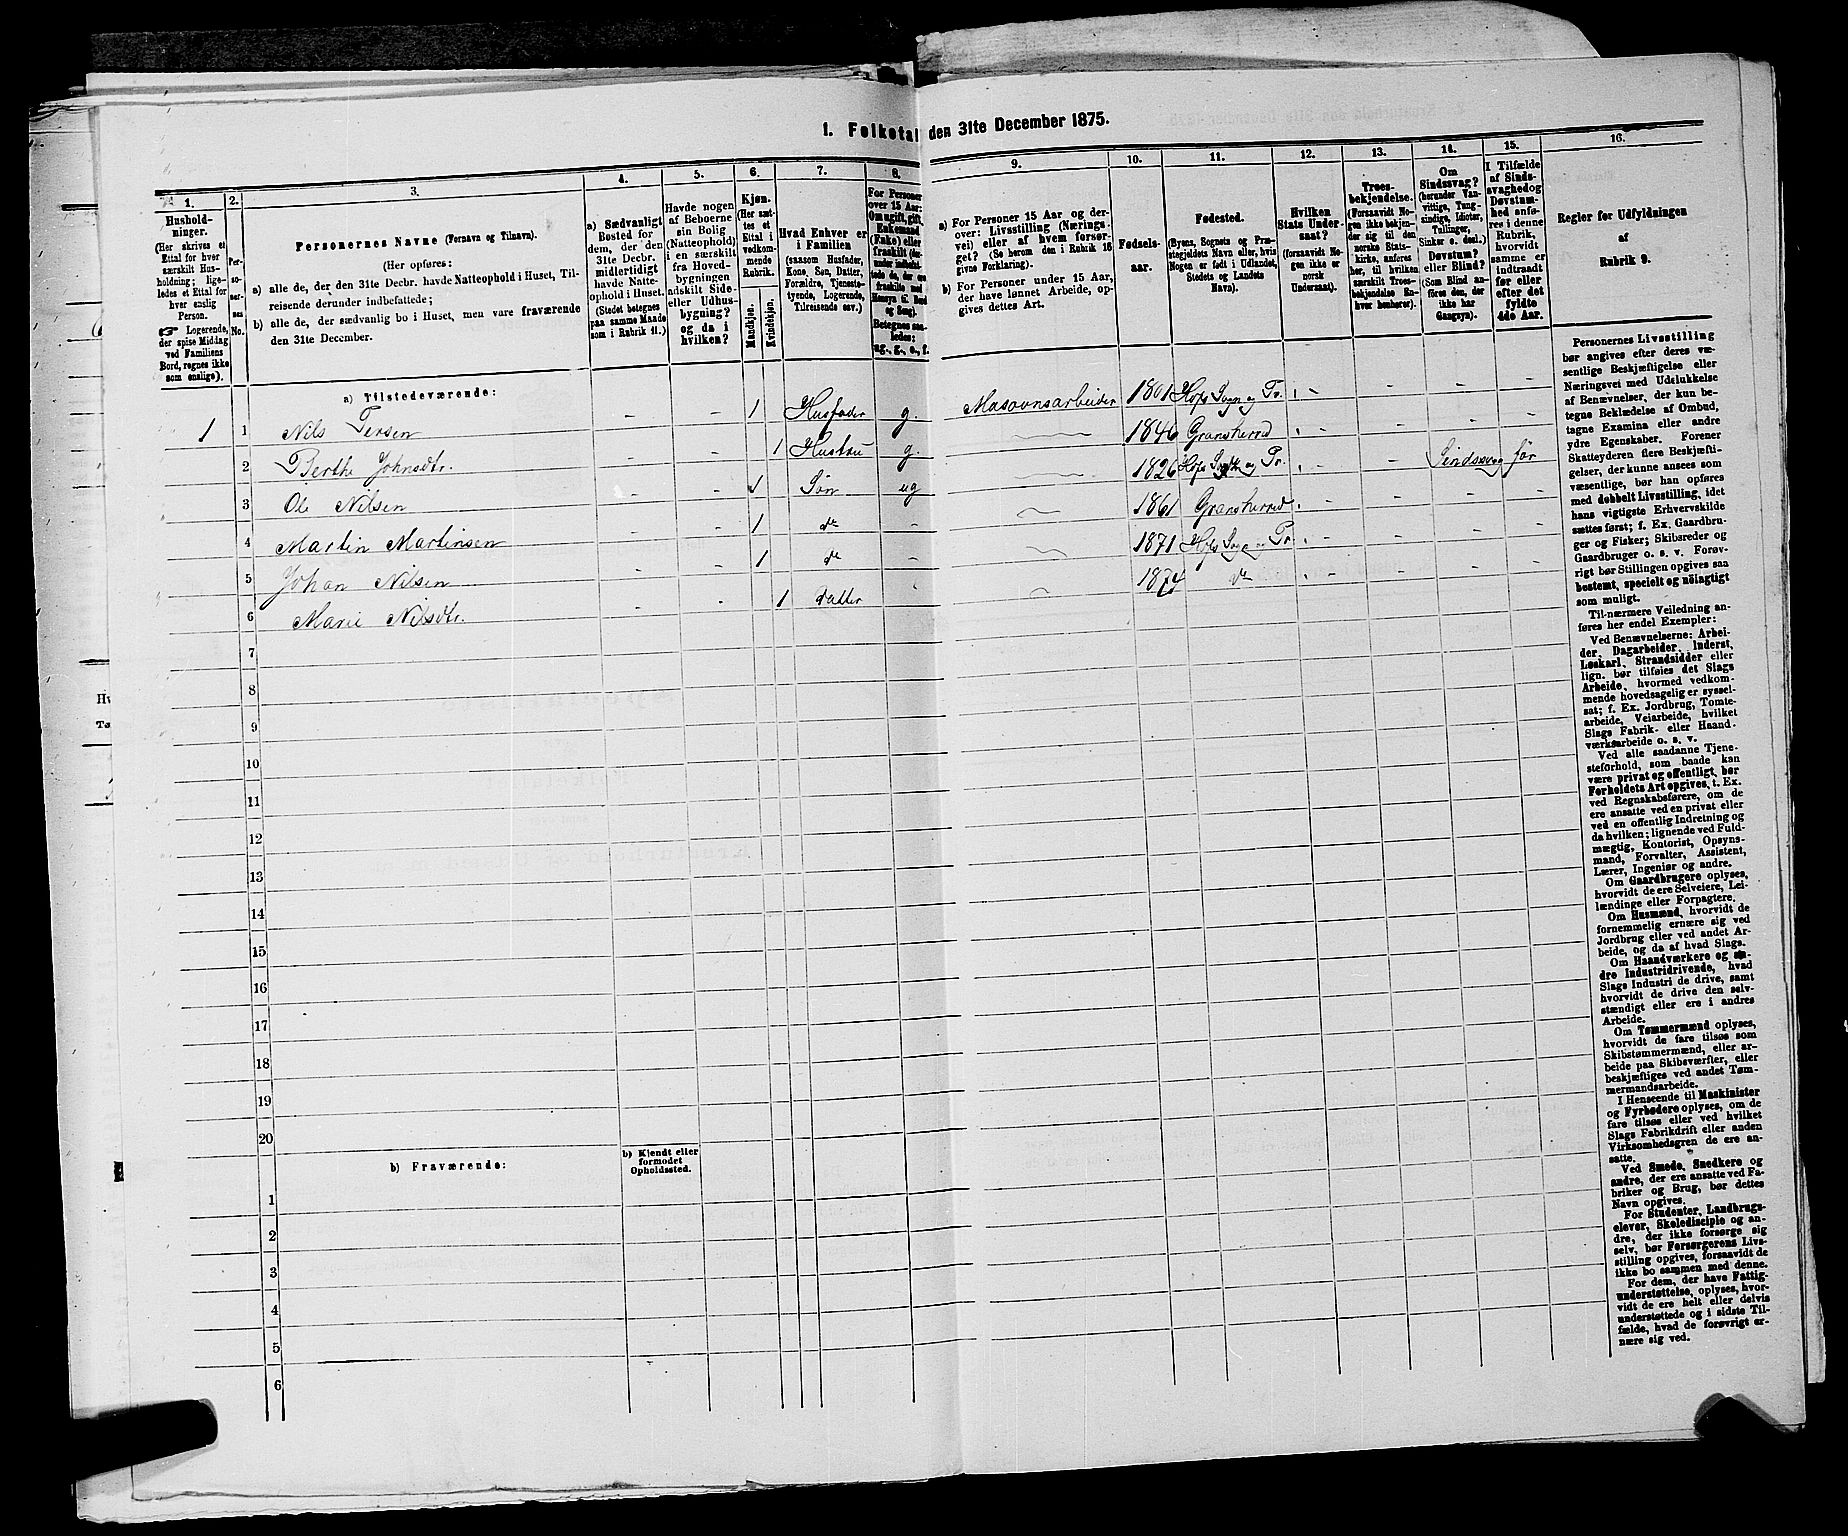 1. Folketal den 31te December 1875.
1. 2. 3. 4. 5. 6. 7. 8. 9. 10. 11. 12. 13. 14. 15. 16.
Hushold-
ninger.
(Her skrives et
Ettal for hver
særskilt Hus-
holdning; lige-
ledes et Ettal for
hver enslig
Person.
☞ Logerende,
der spise Middag
ved Familiens
Bord, regnes ikke
som enslige).
Per-
so-
ner-
nes
No.
Personernes Navne (Fornavn og Tilnavn).
(Her opføres:
a) alle de, der den 31te Decbr. havde Natteophold i Huset, Til-
reisende derunder indbefattede;
b) alle de, der sædvanlig bo i Huset, men vare fraværende
den 31te December.
a) Sædvanligt
Bosted for
dem, der den
31te Decbr.
midlertidigt
havde Natte-
ophold i Huset.
(Stedet betegnes
paa samme Maade
som i Rubrik 11.)
Havde nogen
af Beboerne
sin Bolig
(Natteophold)
i en særskilt
fra Hoved-
bygningen
adskilt Side-
eller Udhus-
bygning?
og da i
hvilken?
Kjøn.
(Her sæt-
tes et
Ettal i
vedkom-
mende
Rubrik.
Mandkjøn.
Kvindekjøn.
Hvad Enhver er
i Familien
(saasom Husfader,
Kone, Søn, Datter,
Forældre, Tjeneste-
tyende, Logerende,
Tilreisende osv.)
For Personer
over 15 Aar:
Om ugift, gift,
Enkemand
(Enke) eller
fraskilt
Betegnes saa-
ledes:
ug., g., e., f.
a) For Personer 15 Aar og der-
over: Livsstilling (Nærings-
vei) eller af hvem forsør-
get? (Se herom den i Rubrik 16
givne Forklaring).
b) For Personer under 15 Aar,
der have lønnet Arbeide, op-
gives dettes Art.
Fødsels-
aar.
Fødested.
(Byens, Sognets og Præ-
stegjeldets Navn eller, hvis
Nogen er født i Udlandet,
Stedets og Landets
Navn).
Hvilken
Stats Under-
saat?
(forsaavidt No-
gen ikke er
norsk
Undersaat).
Troes-
bekjendelse.
(Forsaavidt No-
gen ikke bekjen-
der sig til den
norske Stats-
kirke, anføres
her, til hvilken
særskilt Troes-
bekjendelse En-
hver henhører).
Om
Sindssvag?
(herunder Van-
vittige, Tung-
sindige, Idioter,
Tullinger,
Sinker o. desl.)
Døvstum?
eller Blind?
(Som Blind an-
føres den, der
ikke har
Gangsyn).
I Tilfælde
af Sinds-
svaghed og
Døvstum-
hed anfø-
res i denne
Rubrik,
hvorvidt
samme er
indtraadt
før eller
efter det
fyldte
4de Aar.
Regler for Udfyldningen
af
Rubrik 9.
a) Tilstedeværende:
1 1 Nils Persen - - 1 Husfader g. Masovnsarbeider 1801 Hofs Sogn og Pr. . - - -
2 Berthe Johnsdtr. - - 1 Hustru g. 1846 Gransherred . - - -
3 Ole Nilsen - - 1 Søn ug 1826 Hofs Sogn og Pr. . - Sindssvag før
4 Martin Martinsen - - 1 do - 1861 Gransherred . - - -
5 Johan Nilsen - - 1 do - 1871 Hofs Sogn og Pr. . - - -
6 Marie Nilsdtr. - - 1 datter - 1874 do . - - -
7
8
9
10
11
12
13
14
15
16
17
18
19
20
b) Fraværende:
b) Kjendt eller
formodet
Opholdssted.
1
2
3
4
5
6
Personernes Livsstilling
bør angives efter deres væ-
sentlige Beskjæftigelse eller
Næringsvei med Udelukkelse
af Benævnelser, der kun be-
tegne Beklædelse af Ombud,
tagne Examina eller andre
ydre Egenskaber. Forener
Skatteyderen flere Beskjæfti-
gelser, der kunne ansees som
væsentlige, bør han opføres
med dobbelt Livsstilling, idet
hans vigtigste Erhvervskilde
sættes først; f. Ex. Gaardbru-
ger og Fisker; Skibsreder og
Gaardbruger o. s. v. Forøv-
rigt bør Stillingen opgives saa
bestemt, specielt og nøiagtigt
som muligt.
Til nærmere Veiledning an-
føres her endel Exempler:
Ved Benævnelserne: Arbei-
der, Dagarbeider, Inderst,
Løskarl, Strandsidder eller
lign. bør tilføies det Slags
Arbeide, hvormed vedkom-
mende hovedsagelig er syssel-
sat; f. Ex. Jordbrug, Tomte-
arbeide, Veiarbeide, hvilket
Slags Fabrik- eller Haand-
værksarbeide o. s. v.
Ved alle saadanne Tjene-
steforhold, som baade kan
være privat og offentligt, bør
Forholdets Art opgives, t. Ex.
ved Regnskabsførere, om de
ere ansatte ved en privat eller
ved en offentlig Indretning og
da hvilken; lignende ved Fuld-
mægtig, Kontorist, Opsyns-
mand, Forvalter, Assistent,
Lærer, Ingeniør og andre.
Om Gaardbrugere oplyses,
hvorvidt de ere Selveiere, Lei-
lændinge eller Forpagtere.
Om Husmænd, hvorvidt de
fornemmelig ernære sig ved
Jordbrug eller ved andet Ar-
beide, og da af hvad Slags.
Om Haandværkere og an-
dre Industridrivende, hvad
Slags Industri de drive, samt
hvorvidt de drive den selv-
stændigt eller ere i andres
Arbeide.
Om Tømmermænd oplyses,
hvorvidt de fare tilsøs som
Skibstømmermænd, eller ar-
beide paa Skibsværfter, eller
beskjæftiges ved andet Tøm-
mermandsarbeide.
I Henseende til Maskinister
og Fyrbødere oplyses, om de
fare tilsøs eller ved hvilket
Slags Fabrikdrift eller anden
Virksomhedsgren de ere an-
satte.
Ved Smede, Snedkere og
andre, der ere ansatte ved Fa-
briker og Brug, bør dettes
Navn opgives.
For Studenter, Landbrugs-
elever, Skoledisciple og an-
dre, der ikke forsørge sig
selv, bør Forsørgerens Livs-
stilling opgives, forsaavidt de
ikke bo sammen med denne.
For dem, der have Fattig-
understøttelse, oplyses, hvor-
vidt de ere helt eller delvis
understøttede og i sidste Til-
fælde, hvad de forøvrigt er-
nære sig ved.